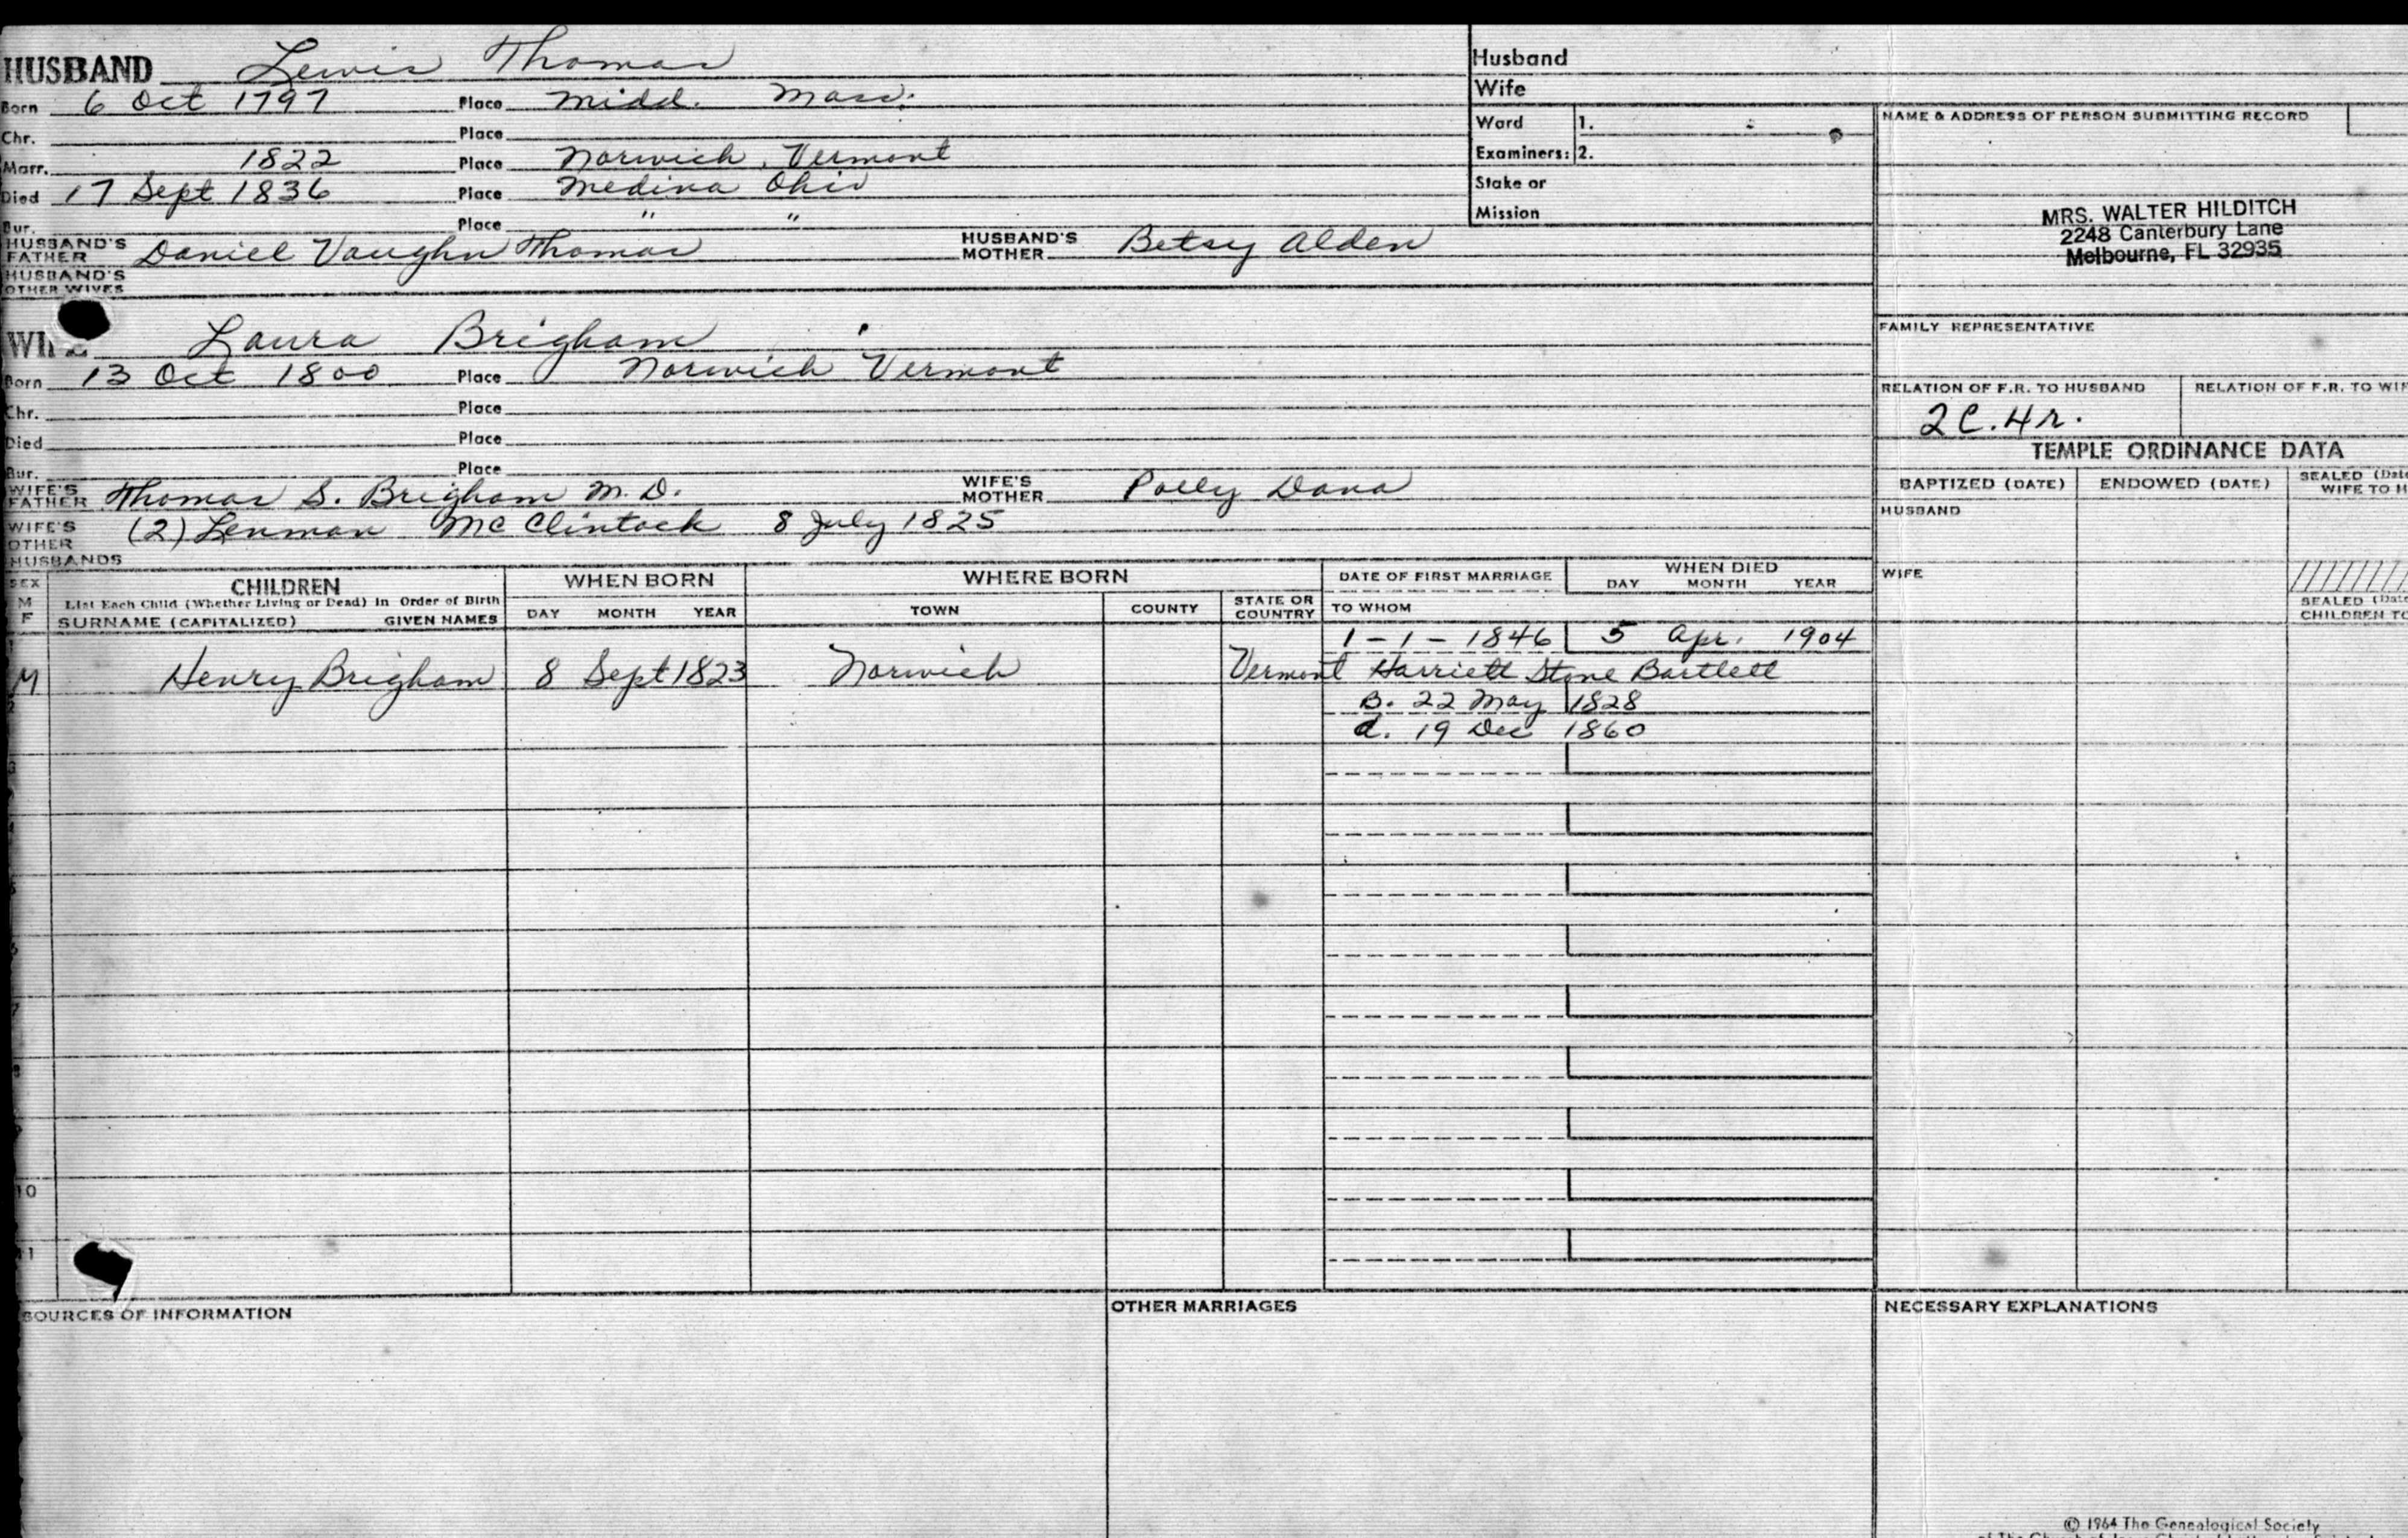 HUSBAND Lewis Thomas
Born 6 Oct 1797 Place Midd. Mass.
Chr. Place
Marr. 1822 Place Norwich, Vermont
Died 17 Sept 1836 Place Medina Ohio
Bur. Place " "
HUSBAND'S FATHER Daniel Vaughn Thomas HUSBAND'S MOTHER Betsy Alden
HUSBAND'S OTHER WIVES
Husband
Wife
Ward 1.
Examiners: 2.
Stake or
Mission
NAME & ADDRESS OF PERSON SUBMITTING RECORD
MRS. WALTER HILDITCH
2248 Canterbury Lane
Melbourne, FL 32935
WIFE Laura Brigham
Born 13 Oct 1800 Place Norwich Vermont
Chr. Place
Died Place
Bur. Place
WIFE'S FATHER Thomas S. Brigham M.D. WIFE'S MOTHER Polly Dana
WIFE'S OTHER HUSBANDS (2) Lenman McClintock 8 July 1825
FAMILY REPRESENTATIVE
RELATION OF F.R. TO HUSBAND RELATION OF F.R. TO WIF
2C.4r.
TEMPLE ORDINANCE DATA
BAPTIZED (DATE) ENDOWED (DATE) SEALED (Date
WIFE TO H
HUSBAND
WIFE
SEALED (Date
CHILDREN TO
SEX M F CHILDREN WHEN BORN WHERE BORN DATE OF FIRST MARRIAGE WHEN DIED
List Each Child (Whether Living or Dead) in Order of Birth DAY MONTH YEAR
SURNAME (CAPITALIZED) GIVEN NAMES DAY MONTH YEAR TOWN COUNTY STATE OR COUNTRY TO WHOM
1 1-1-1846 5 Apr. 1904
M Henry Brigham 8 Sept 1823 Norwich Vermont Harriett Stone Bartlett
2 B. 22 May 1828
d. 19 Dec 1860
3
4
5
6
7
8
9
10
11
SOURCES OF INFORMATION OTHER MARRIAGES NECESSARY EXPLANATIONS
© 1964 The Genealogical Society